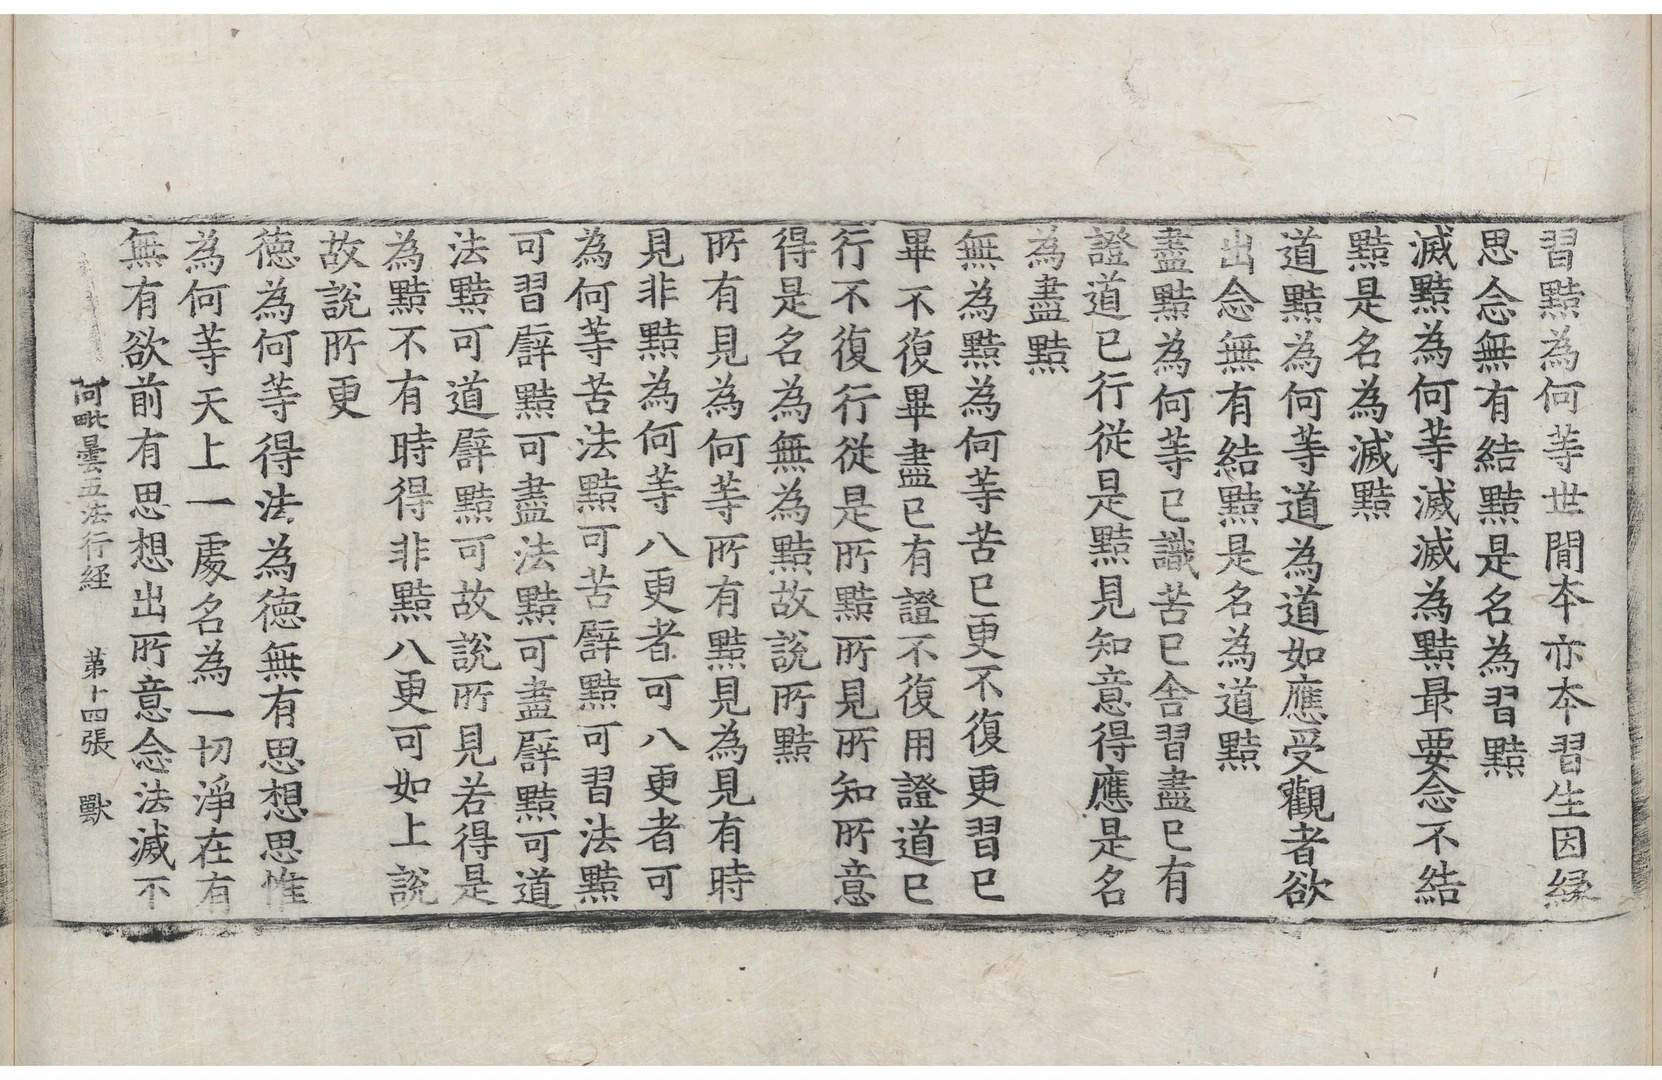 習黠為何等世間本亦本習生因緣
思念無有結黠是名為習黠
滅黠為何等滅滅為黠最要念不結
黠是名為滅黠
道黠為何等道為道如應受觀者欲
出念無有結黠是名為道黠
盡黠為何等已識苦已舍習盡已有
證道已行從是黠見知意得應是名
為盡黠
無為黠為何等苦已更不復更習已
畢不復畢盡已有證不復用證道已
行不復行從是所黠所見所知所意
得是名為無為黠故說所黠
所有見為何等所有黠見為見有時
見非黠為何等八更者可八更者可
為何等苦法黠可苦譬黠可習法黠
可習譬黠可盡法黠可盡譬黠可道
法黠可道譬黠可故說所見若得是
為黠不有時得非黠八更可如上說
故說所更
德為何等得法為德無有思想思惟
為何等天上一處名為一切淨在有
無有欲前有思想出所意念法滅不
阿毗曇五法行經 第十四張 獸